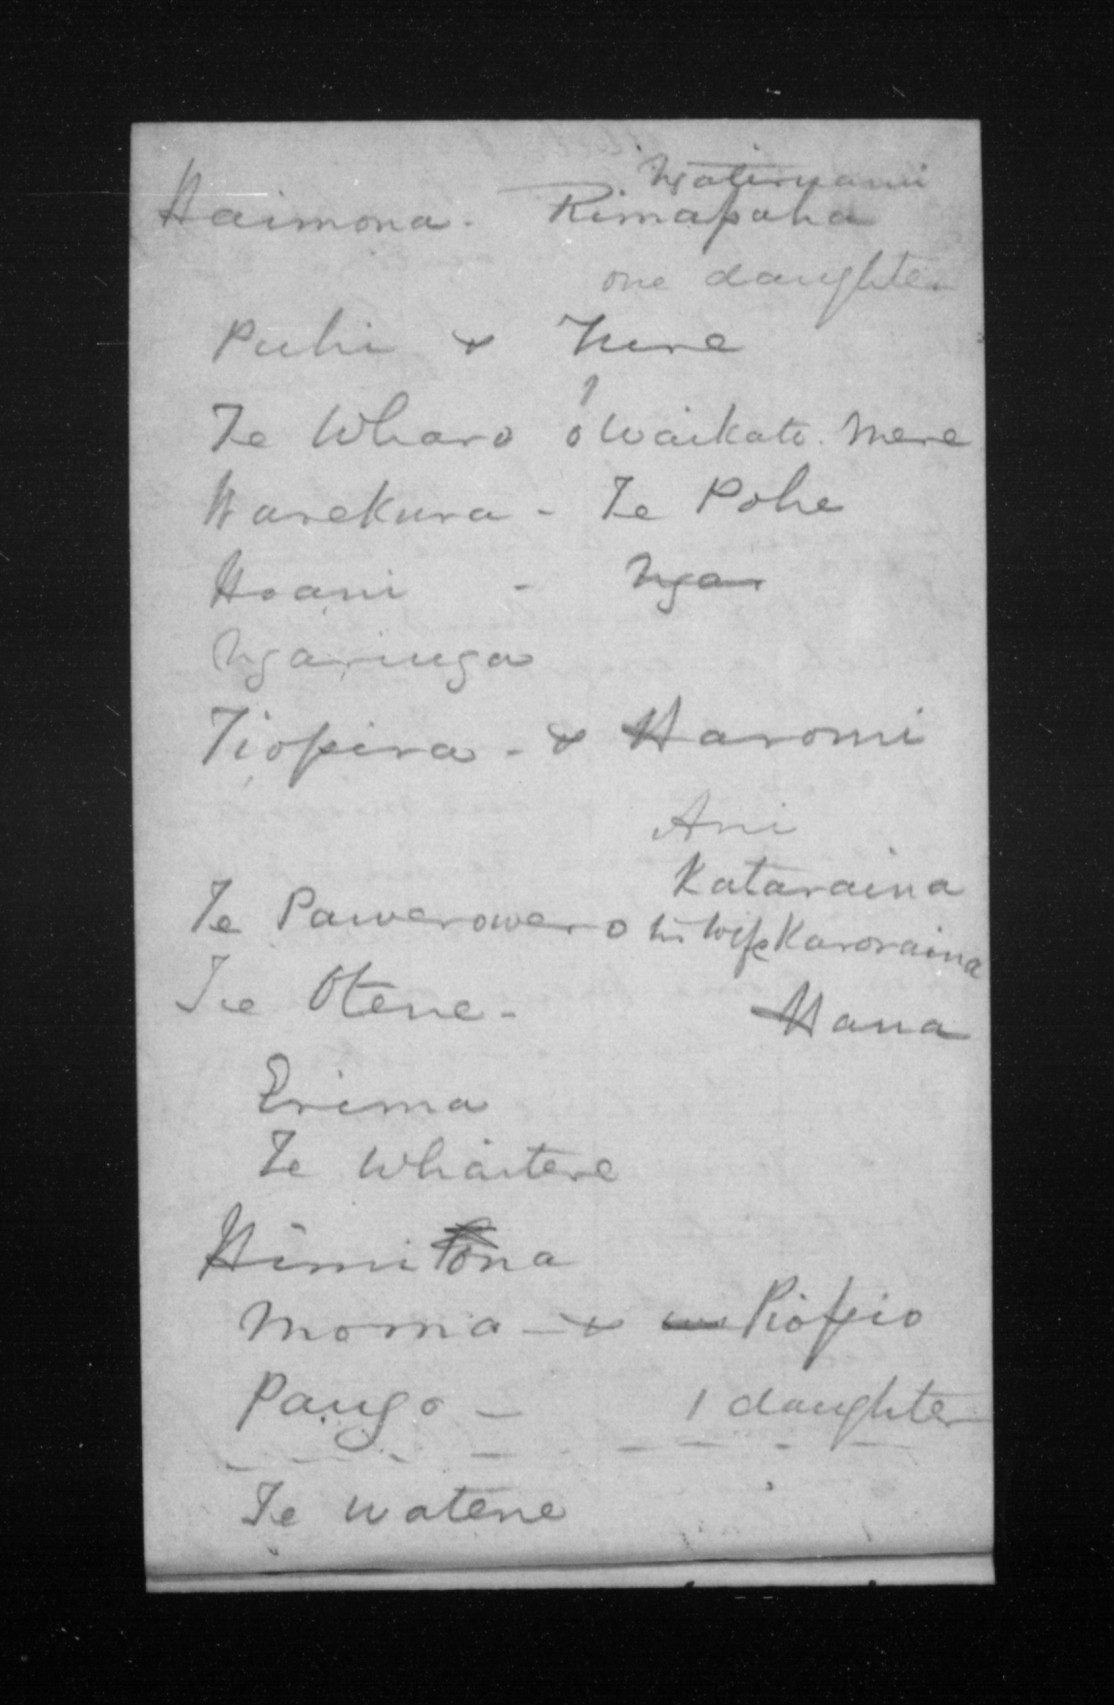 Ngatiruanui
Haimona - Rimapaha
one daughter
Puhi & Mere
Te Wharo o Waikato. Mere
Harekura - Te Pohe
Hoani - Nga
Ngaringa
Tiopira - & Haromi
Ani
Kataraina
Te Pawerowero his wife Kororaina
Te Otene - Hana
Erima
Te Whaitere
Himiona
Moma - & Piopio
Pango - 1 daughter
Te Watene